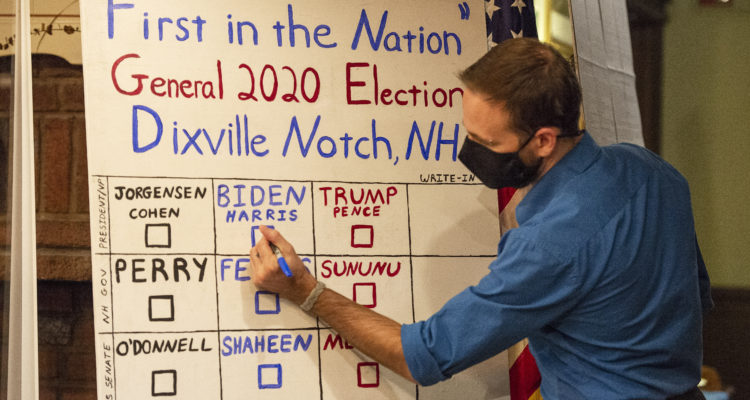 First in the Nation"
General 2020 Election
Dixville Notch, NH
WRITE-IN
PRESIDENT/VP
JORGENSEN
COHEN
BIDEN
HARRIS
TRUMP
PENCE
NH GOV
PERRY
SUNUNU
SENATE
O'DONNELL
SHAHEEN